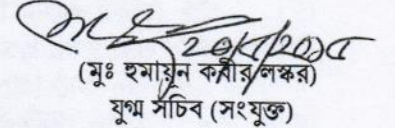 (মুঃ হুমায়ুন কবীর লস্কর)
যুগ্ম সচিব (সংযুক্ত)